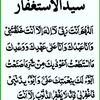 سيد الاستغفار
اَللّٰهُمَّ أَنْتَ رَبِّي لَا إِلٰهَ إِلَّا أَنْتَ خَلَقْتَنِي
وَأَنَا عَبْدُكَ وَأَنَا عَلَى عَهْدِكَ وَوَعْدِكَ
مَا اسْتَطَعْتُ أَعُوذُ بِكَ مِنْ شَرِّ مَا صَنَعْتُ
أَبُوءُ لَكَ بِنِعْمَتِكَ عَلَيَّ وَأَبُوءُ
فَاغْفِرْ لِي فَإِنَّهُ لَا يَغْفِرُ الذُّنُوبَ إِلَّا أَنْتَ